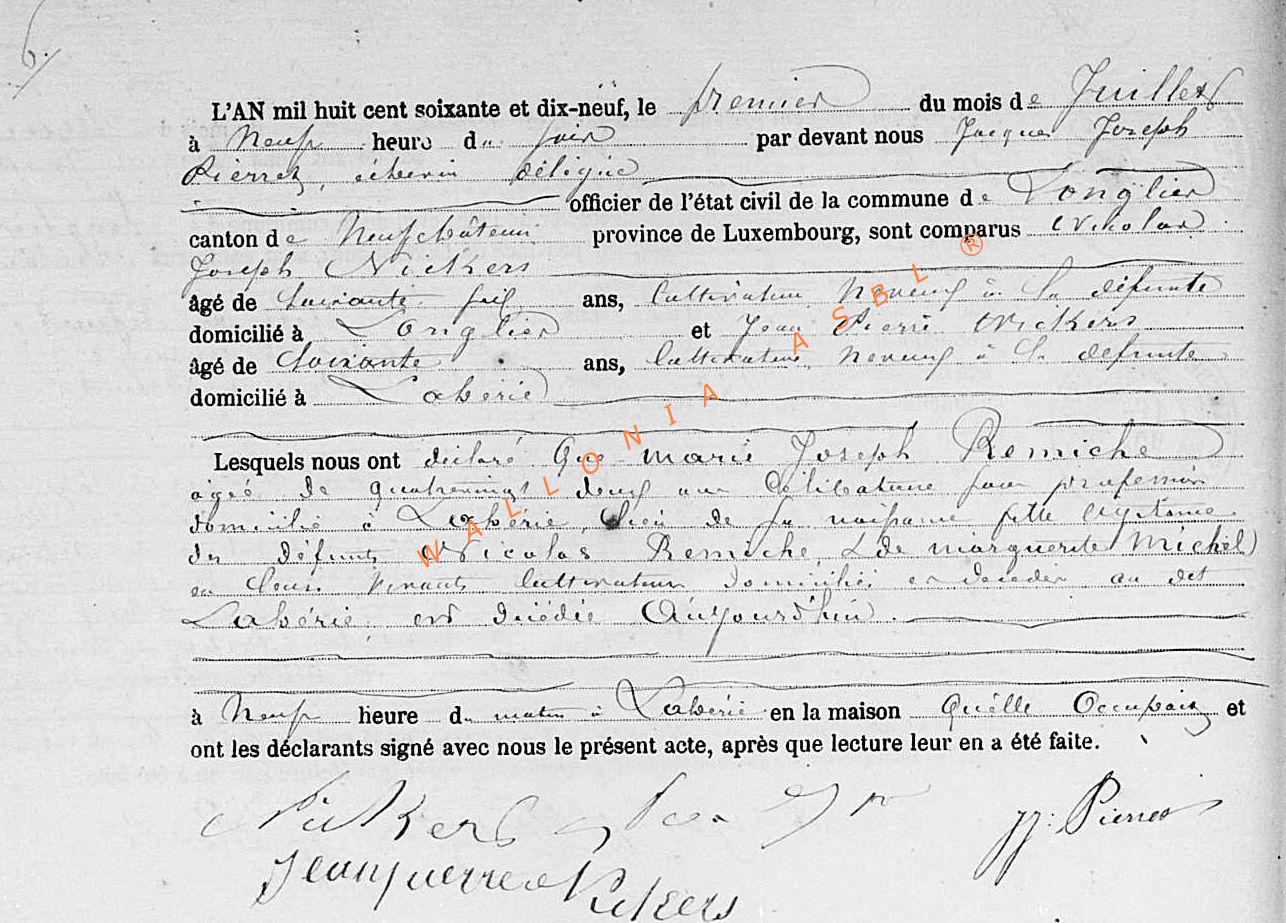 6.
L'AN mil huit cent soixante et dix-neuf, le premier du mois de Juillet
à Neuf heure du soir par devant nous Jacques Joseph
Pierret, échevin délégué
officier de l'état civil de la commune de Longlier
canton de Neufchâteau province de Luxembourg, sont comparus Nickolas
Joseph Nickers
âgé de Soixante six ans, Cultivateur Neveux à la défunte
domicilié à Longlier et Jean Pierre Nickers
âgé de Soixante ans, Cultivateur Neveux à la défunte
domicilié à Labérie
Lesquels nous ont déclaré Que marie Joseph Remiche
agée de quatrevingt deux ans Célibataire sans profession
domicilié à Labérie, lieu de sa naissance fille légitime
des défunts Nicolas Remiche, & de marguerite Michel
en leurs vivants Cultivateurs domiciliés et décédés au dit
Labérie, est décédée Aujourd'hui
à Neuf heure du matin à Labérie en la maison Qu'elle Occupait et
ont les déclarants signé avec nous le présent acte, après que lecture leur en a été faite.
Nickers
JJ: Pierret
Jean pierre Nickers
WALLONIA ASBL ®